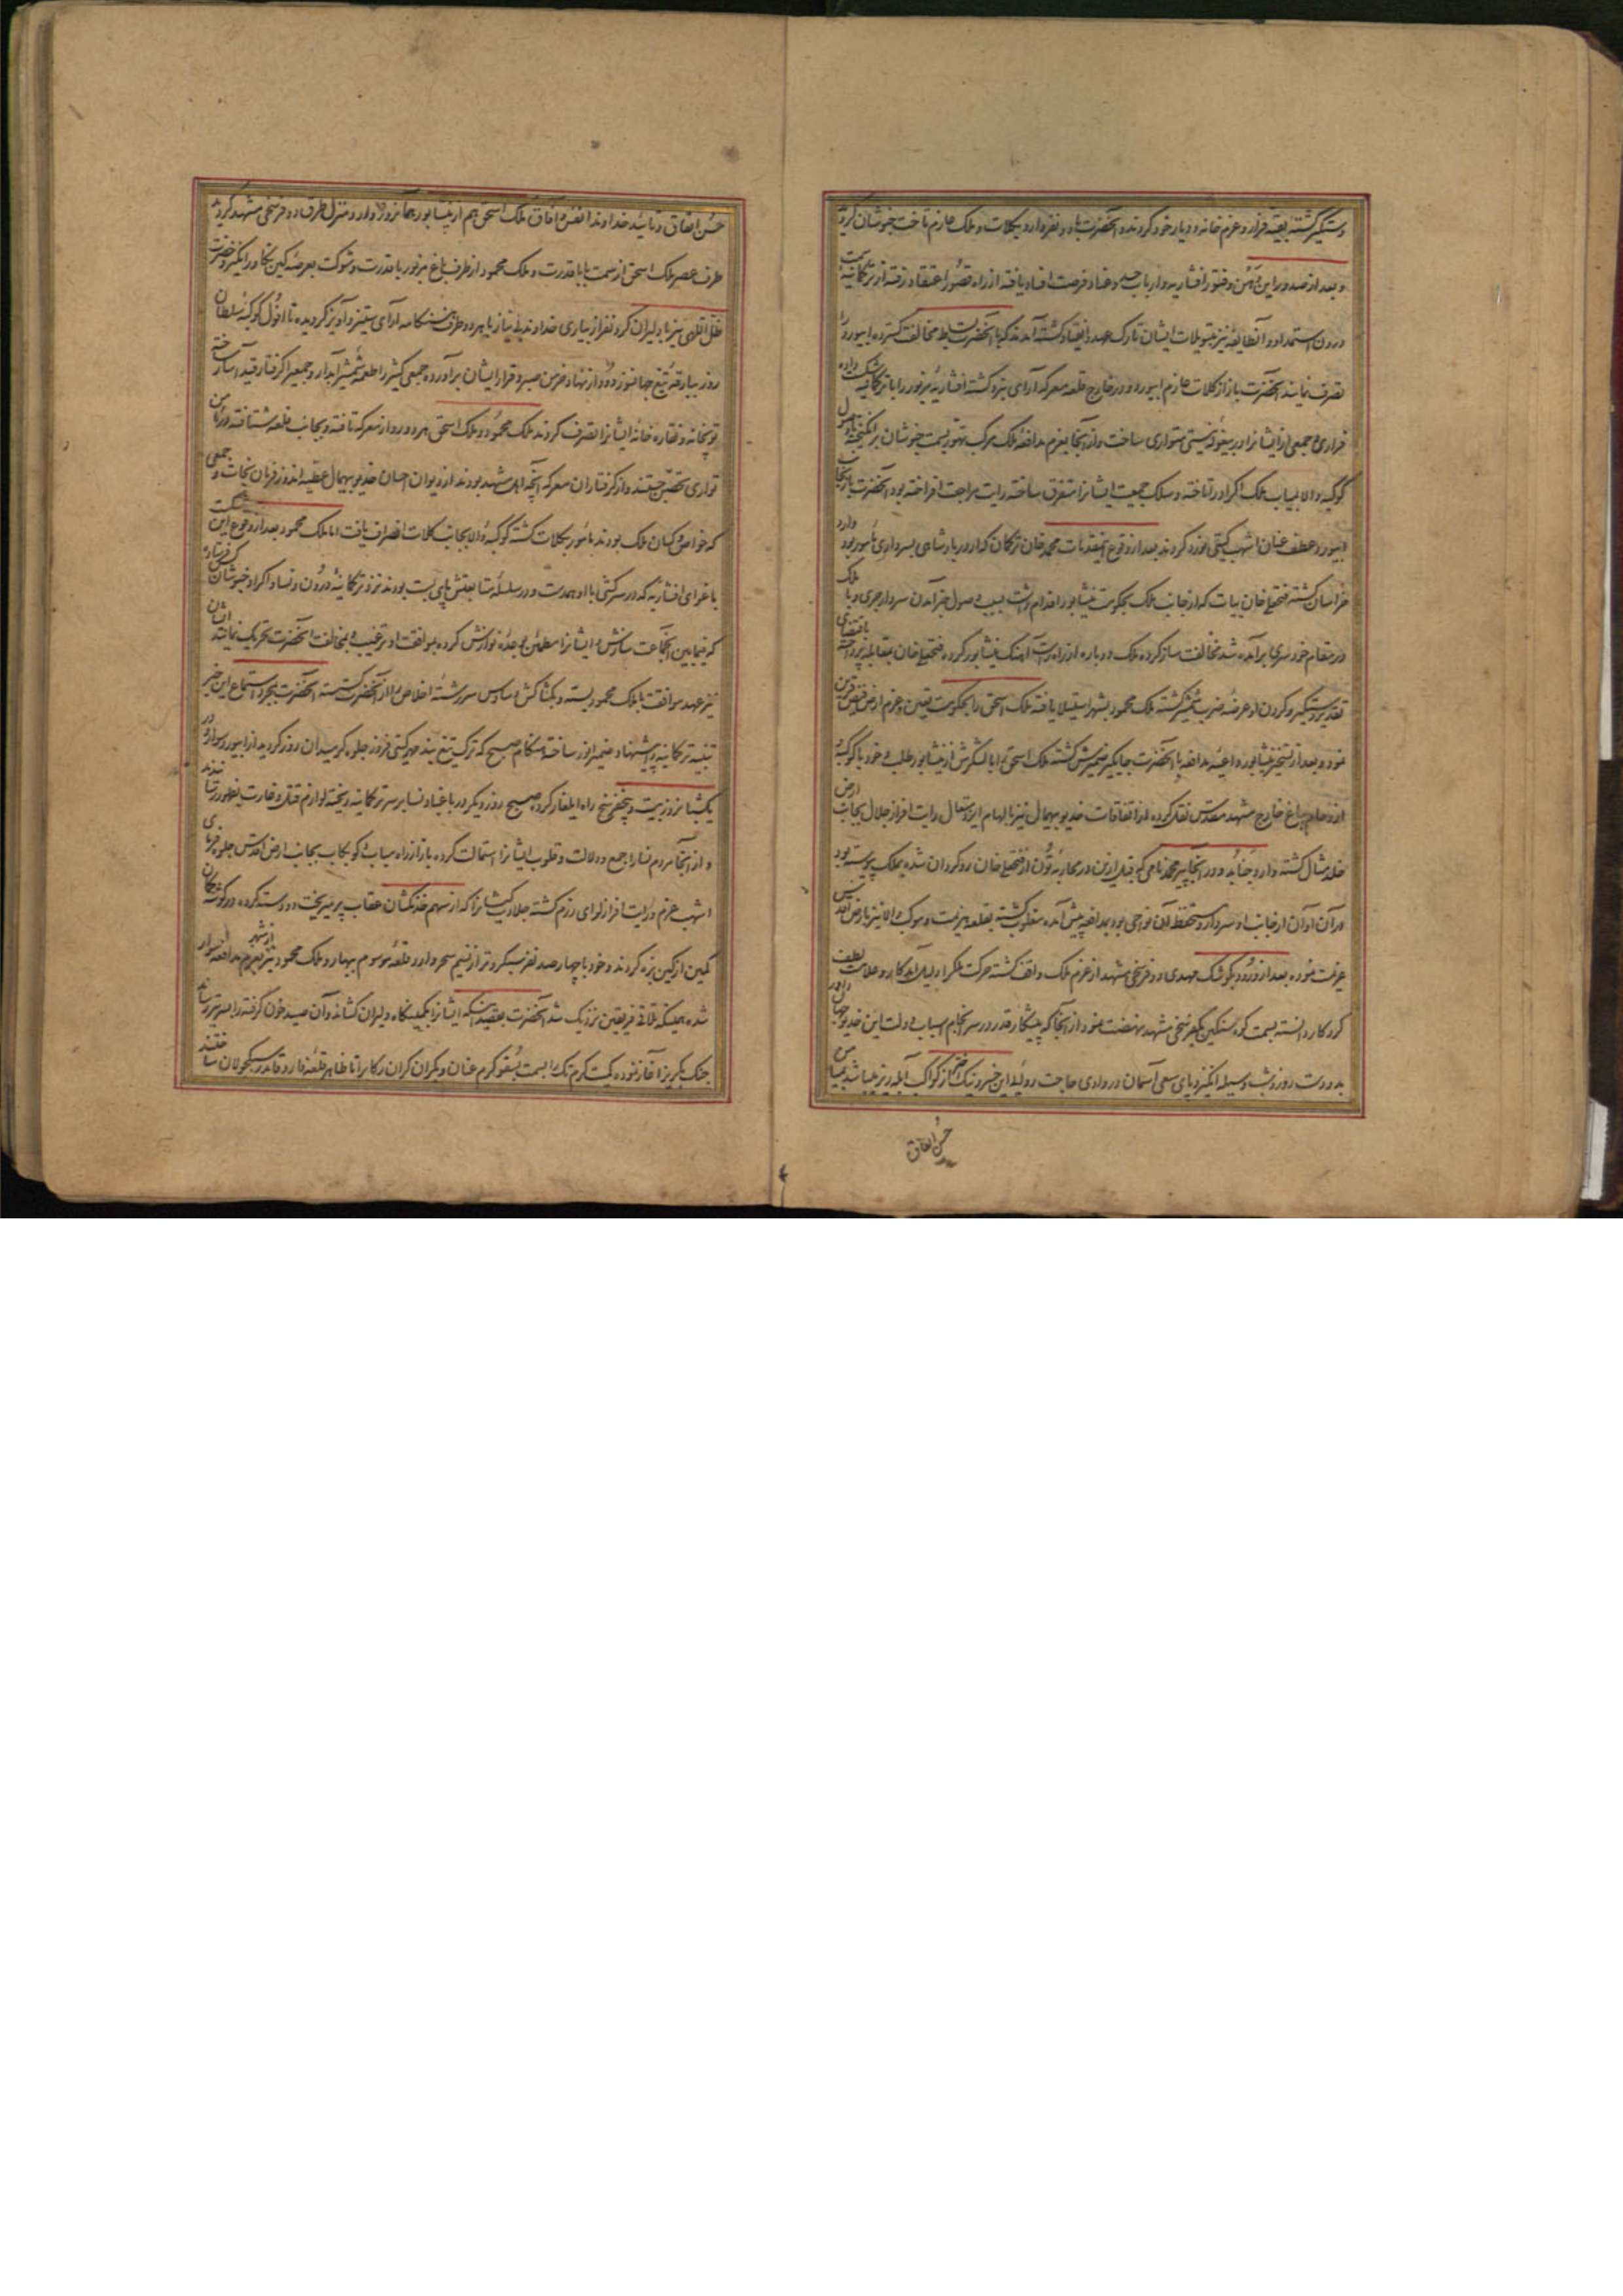 دستگیر گشته بقیه فرار و عزم خانه و دیار خود کردند و آنحضرت با دو نفر وارد کلات و ملک عازم تاخت خبوشان گردید
و بعد از صدور این وهن و فتور افشاریه و ارباب حسد و عناد فرصت افساد یافته از راه قصور اعتقاد رفته از ترکمانیه سمت
درون استمداد و آنطایفه نیز بتسویلات ایشان تارک عهد و انقیاد گشته آمدند که با آنحضرت بساط مخالفت گسترده ابیورد را
تصرف نمایند آنحضرت باز از کلات عازم ابیورد و در خارج قلعه معرکه آرای نبرد گشته افشاریه مزبور را با ترکمانیه شکست داده
فراری و جمعی از ایشانرا در بیغوله نیستی متواری ساخت و از آنجا بعزم مدافعه ملک مرکب تهور بسمت خبوشان برانگیخته تا وصول
کوکبه والا ملک اکراد را تاخته و سلک جمعیت ایشانرا متفرق ساخته رایت مراجعت افراخته بود آنحضرت باز بجانب
ابیورد عطف عنان اشهب گیتی نورد کردند بعد از وقوع این مقدمات محمد خان ترکمان که از دربار شاهی بسرداری مأمور بود وارد
خراسان گشته فتحعلی خان بیات که از جانب ملک بحکومت نیشابور اقدام داشت بسبب وصول خبر آمدن سردار جری و با ملک
در مقام خودسری برآمده شد مخالفت ساز کرده ملک دوباره از راه راست آهنگ نیشابور کرده فتحعلی خان بمقابله پرداخته باقتضای
تقدیر دستگیر و گردن او عرضه ضرب شمشیر گشته ملک محمود بشهر استیلا یافته ملک اسحق را بحکومت تعیین و عزم ارض فیض قرین
نمود و بعد از تسخیر نیشابور داعیه مدافعه با آنحضرت جایگیر ضمیرش گشته ملک اسحق را با لشکرش از نیشابور طلب و خود با کوکبه و
ازدحام بباغ خارج مشهد مقدس نقل کرده از اتفاقات خدیو بیهمال نیز بالهام ایزد متعال رایت افراز جلال بجانب ارض
خلد مثال گشته وارد چناید و در آنجا پیر محمد نامی که قبل از این در محاربه تون از فتحعلی خان روگردان شده بملک پیوسته بود
در آن اوان از جانب او سردار و مستحفظ آن نواحی بود بمدافعه پیش آمده مغلوب گشته بقلعه هزیمت و موکب والا نیز بارض اقدس
عزیمت نموده بعد از ورود بکوشک مهدی دو فرسخی مشهد از عزم ملک واقف گشته حرکت ملک را دلیل کار و علامت لطف
کردگار دانسته بسمت کوه سنگین یکفرسخی مشهد نهضت نمود از آنجا که پیشکار قدر در سرانجام اسباب دولت این خدیو جهان داور
بدو دست روز و شب وسیله انگیز و پای سعی آسمان در وادی حاجت روایی این خسرو نیک اختر از کواکب آبله ریز میباشد بمیامن
حسن اتفاق
حسن اتفاق و تأیید خداوند انفس و آفاق ملک اسحق هم از نیشابور همانروز وارد منزل طرف دو فرسخی مشهد گردید
طرف عصر ملک اسحق از سمت بابا قدرت و ملک محمود از طرف باغ مزبور با قدرت و شوکت بعرصه کین بخاور انگیز و حضرت
ظل اللهی نیز با دلیران کرد و نفر از بیاری خداوند بی نیاز با هر دو طرف هنگامه آرای ستیز و آویز گردیده تا افول کوکبه سلطان
روز ببارقه تیغ جهانسوز دود از نهاد خرمن صبر و قرار ایشان برآورده جمعی کثیر را طعمه شمشیر آبدار و جمعیرا گرفتار قید اسار ساخته
توپخانه و نقاره خانه ایشانرا تصرف کردند ملک محمود و ملک اسحق هر دو رو از معرکه تافته و بجانب قلعه شتافته در مأمن
تواری تحصن جستند و از گرفتاران معرکه آنچه اهل مشهد بودند از دیوان احسان خدیو بیهمال عطیه اندوز فرمان نجات و جمعی
که خواص و کسان ملک بودند مأمور بکلات گشته کوکبه والا بجانب کلات انصراف یافت اما ملک محمود بعد از وقوع این شکست
با غوای افشاریه که در سرکشی با او همدست و در سلسله متابعتش پای بست بودند نزد ترکمانیه درون و نسا و اکراد خبوشان کس فرستاده
که فیمابین آنجماعت سازش و ایشانرا مطمئن بوعده نوازش کرده بموافقت او ترغیب و بمخالفت آنحضرت تحریک نمایند ایشان
نیز عهد موافقت با ملک محمود بسته و بکشاکش وساوس سررشته اخلاص را از آنحضرت گسسته آنحضرت بمجرد استماع این خبر
تنبیه ترکمانیه را پیشنهاد ضمیر انور ساخته هنگام صبح که ترک تیغ بند مهر گیتی فروز جلوه گر میدان روز گردید از ابیورد سوار و در
یکشبانروز بیست و پنجفرسخ راه ایلغار کرده صبح روز دیگر در باغباد نسا بر سر ترکمانیه ریخته لوازم قتل و غارت بظهور رسانیدند
و از آنجا مردم نسا را جمع و دلالت و قلوب ایشانرا استمالت کرده باز از راه میاب و کوبکاب بجانب ارض اقدس جلوه فرمای
اشهب عزم و رایت افراز لوای رزم گشته جلادت کیشانرا که از سهم خدنگشان عقاب پر میریخت دو دسته کرده در گوشه کمان
کمین از کین بزه کردند و خود با چهارصد نفر سبکرو تر از نسیم سحر وارد قلعه موسوم ببهار و ملک محمود نیز بعزم مدافعه سوار از شهر
شده همینکه تلاقی فریقین نزدیک شد آنحضرت بقصد اینکه ایشانرا بکمینگاه دلیران کشاند و آن صید خون گرفته را بسر تیر رساند
جنگ بگریز آغاز نموده کمیت گرم تک را بسمت بشقو گرم عنان و یکران گران رکاب را تا ظاهر قلعه سبکجولان ساختند